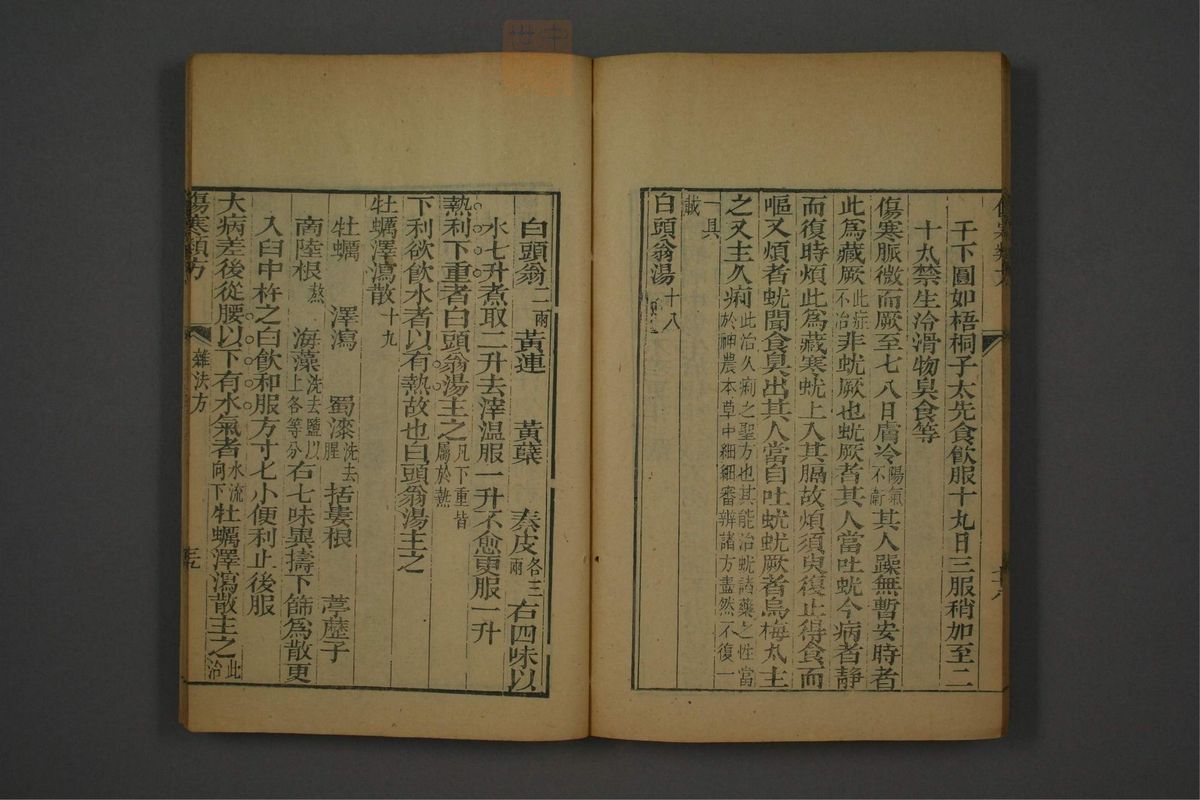 千下圓如梧桐子大先食飲服十丸日三服稍加至二
十丸禁生冷滑物臭食等
傷寒脈微而厥至七八日膚冷陽氣不衛其人躁無暫安時者
此為藏厥此症不治非蚘厥也蚘厥者其人當吐蚘今病者靜
而復時煩此為藏寒蚘上入其膈故煩須臾復止得食而
嘔又煩者蚘聞食臭出其人當自吐蚘蚘厥者烏梅丸主
之又主久痢此治久痢之聖方也其能治蚘諸藥之性當於神農本草中細細審辨諸方盡然不復一
一具載
白頭翁湯十八
白頭翁二兩 黃連 黃蘗 秦皮各三兩 右四味以
水七升煮取二升去滓溫服一升不愈更服一升
熱利下重者白頭翁湯主之凡下重皆屬於熱
下利欲飲水者以有熱故也白頭翁湯主之
牡蠣澤瀉散十九
牡蠣 澤瀉 蜀漆洗去腥 括蔞根 葶藶子
商陸根熬 海藻洗去鹽以上各等分 右七味異擣下篩為散更
入臼中杵之白飲和服方寸七小便利止後服
大病差後從腰以下有水氣者水流向下牡蠣澤瀉散主之此治
傷寒類方 雜法方